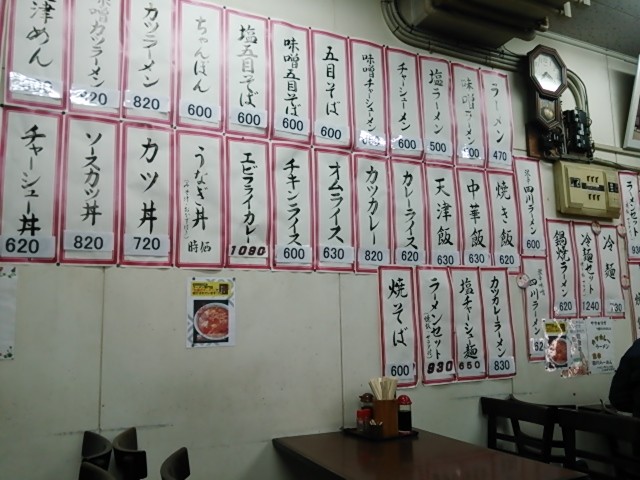 ラーメン
470
味噌ラーメン
塩ラーメン
500
チャーシューメン
600
味噌チャーシューメン
五目そば
600
味噌五目そば
600
塩五目そば
600
ちゃんぽん
600
カツラーメン
820
味噌カツラーメン
820
津めん
焼き飯
620
中華飯
630
天津飯
630
カレーライス
620
カツカレー
820
オムライス
630
チキンライス
600
エビフライカレー
1090
うなぎ丼
時価
カツ丼
720
ソースカツ丼
820
チャーシュー丼
620
四川ラーメン
600
鍋焼ラーメン
620
冷麺セット
1240
冷麺
730
カツカレーラーメン
830
塩チャーシュー麺
650
ラーメンセット
830
焼そば
600
四川ラ